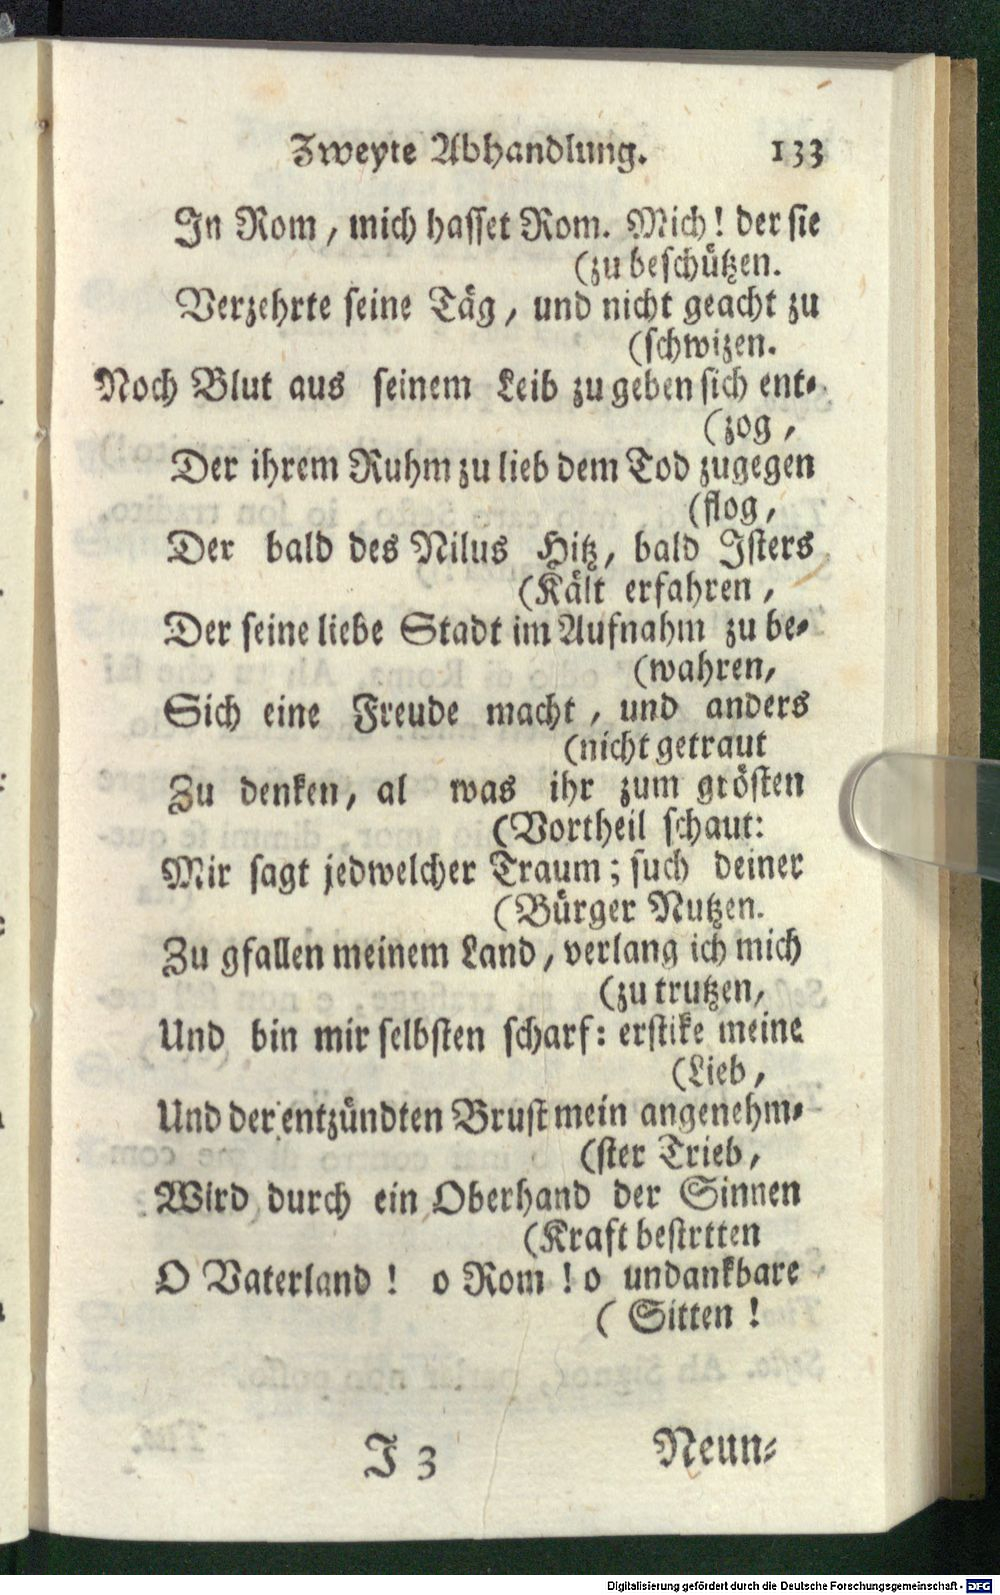 Zweyte Abhandlung. 133
In Rom, mich hasset Rom. Mich! der sie
(zu beschützen.
Verzehrte seine Täg, und nicht geacht zu
(schwizen.
Noch Blut aus seinem Leib zu geben sich ent-
(zog,
Der ihrem Ruhm zu lieb dem Tod zugegen
(flog,
Der bald des Nilus Hitz, bald Isters
(Kält erfahren,
Der seine liebe Stadt im Aufnahm zu be-
(wahren,
Sich eine Freude macht, und anders
(nicht getraut
Zu denken, al was ihr zum grösten
(Vortheil schaut:
Mir sagt jedwelcher Traum; such deiner
(Bürger Nutzen.
Zu gfallen meinem Land, verlang ich mich
(zu trutzen,
Und bin mir selbsten scharf: erstike meine
(Lieb,
Und der entzündten Brust mein angenehm-
(ster Trieb,
Wird durch ein Oberhand der Sinnen
(Kraft bestrtten
O Vaterland! o Rom! o undankbare
(Sitten!
J 3 Neun-
Digitalisierung gefördert durch die Deutsche Forschungsgemeinschaft - DFG